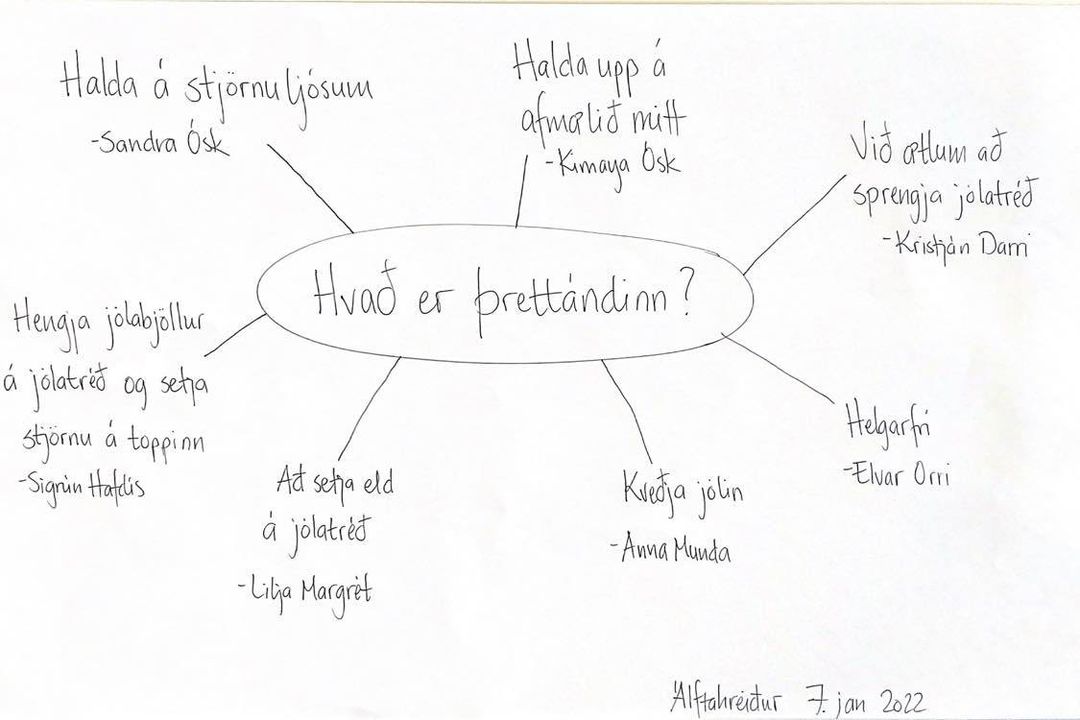 Halda á stjörnuljósum
-Sandra Ósk
Halda upp á
afmælið mitt
-Kimaya Ósk
Við ætlum að
sprengja jólatréð
-Kristján Darri
Hvað er þrettándinn?
Hengja jólabjöllur
á jólatréð og setja
stjörnu á toppinn
-Sigrún Hafdís
Að setja eld
á jólatréð
-Lilja Margrét
Kveðja jólin
-Anna Munda
Helgarfrí
-Elvar Orri
Álftahreiður 7. jan 2022